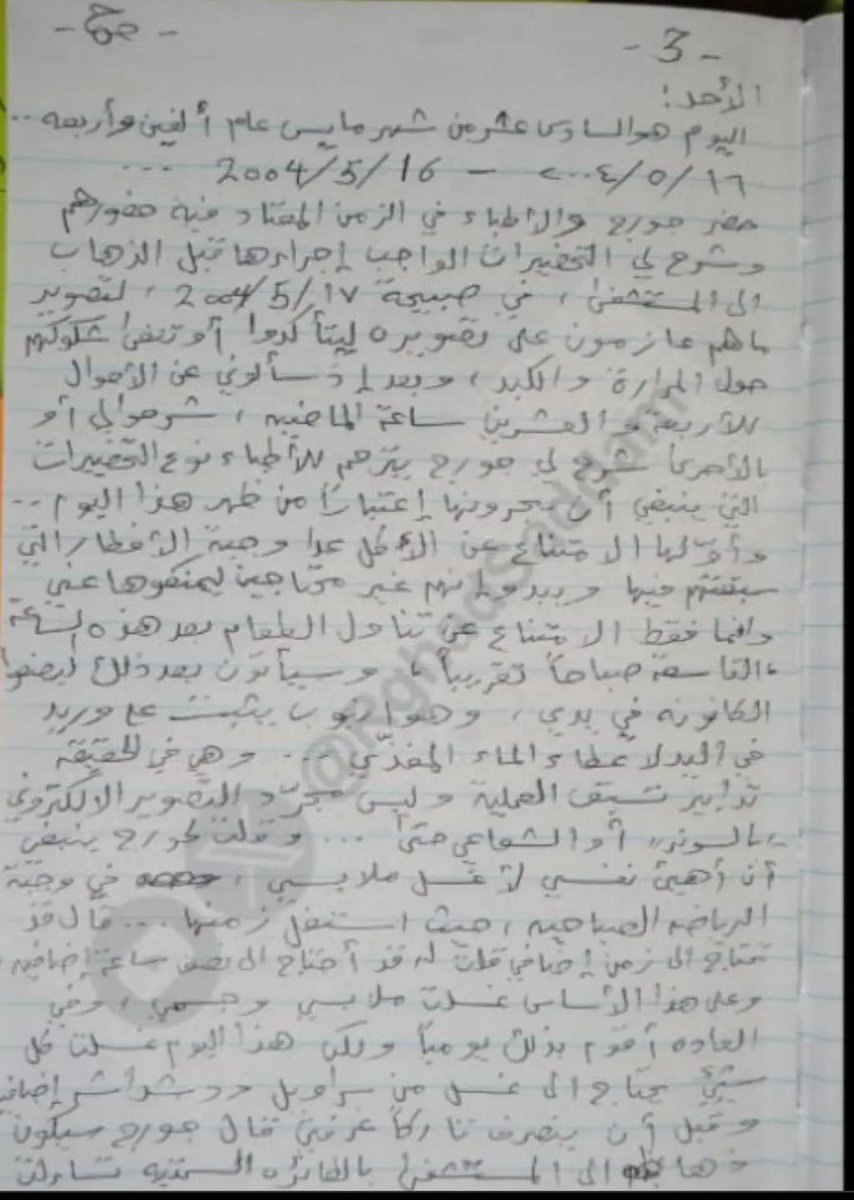 - 3 -
- ج -
الأحد :
اليوم هو السادس عشر من شهر مايس عام ألفين وأربعه ..
١٦/٥/٢٠٠٤ - 2004/5/16 ...
حضر جورج والأطباء في الزمن المعتاد فيه حضورهم
وشرح لي التحضيرات الواجب إجراءها قبل الذهاب
الى المستشفى ، في صبيحة 2004/5/١٧ ، لتصوير
ما هم عازمون على تصويره ليتأكدوا أو تنفى شكوكهم
حول المرارة والكبد ، وبعد إذ سألوني عن الأحوال
للأربعة والعشرين ساعة الماضيه ، شرحوا لي أو
بالأحرى شرح لي جورج يترجم للأطباء نوع التحضيرات
التي ينبغي أن يجرونها إعتباراً من ظهر هذا اليوم ..
وأوّلها الامتناع عن الأكل عدا وجبة الأفطار التي
سبقتهم فيها ويبدو إنهم غير محتاجين ليمنعوها عني
وانما فقط الامتناع عن تناول الطعام بعد هذه الساعة
"التاسعة صباحاً تقريباً" وسيأتون بعد ذلك ليضعوا
الكانونه في يدي ، وهو انبوب يثبت على وريد
في اليد لاعطاء الماء المغذّي ... وهي في الحقيقة
تدابير تسبق العملية وليس مجرّد التصوير الالكتروني
"بالسونر" أو الشعاعي حتى ... وقلت لجورج ينبغي
أن أهيئ نفسي لأغسل ملابسي ، في وجبة
الرياضه الصباحيه ، حيث استغل زمنها ... قال قد
تحتاج الى زمن إضافي قلت له قد أحتاج الى نصف ساعة إضافيه
وعلى هذا الأساس غسلت ملابسي وجسمي ، وفي
العاده أقوم بذلك يومياً ولكن هذا اليوم غسلت كل
شيئ يحتاج الى غسل من سراويل ودشداشة إضافيه
وقبل أن ينصرف تاركاً غرفتي قال جورج سيكون
ذهابك الى المستشفى بالطائره السمتيه تساءلت
@RghadSaddam